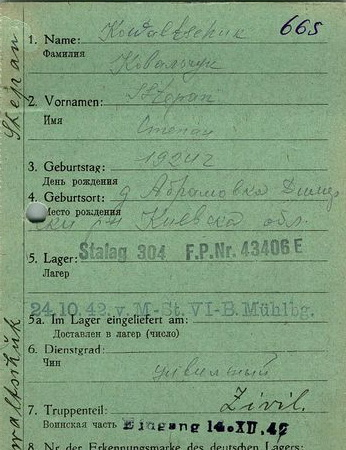 665
1. Name: Kowaltschuk
Фамилия Ковальчук
2. Vornamen: Stepan
Имя Степан
3. Geburtstag: 1924 г
День рождения
4. Geburtsort: д Абрамовка Дымер
Место рождения ски рн Киевска обл.
5. Lager: Stalag 304 F.P.Nr. 43406 E
Лагерь
24.10.42 v. M-St. VI-B. Mühlbg.
5a. Im Lager eingeliefert am:
Доставлен в лагерь (число)
6. Dienstgrad:
Чин
цивильный
7. Truppenteil: Zivil.
Воинская часть Eingang 14.XII.42
8. Nr. der Erkennungsmarke des deutschen Lagers:
Stepan